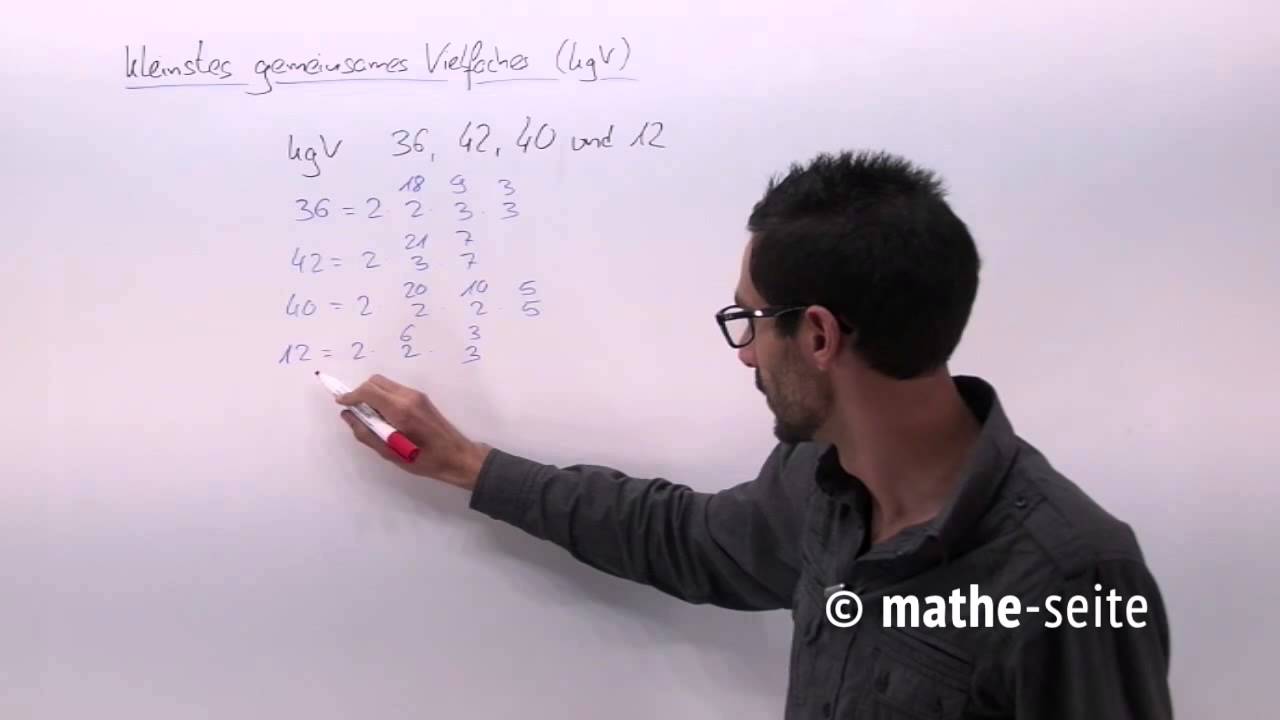 kleinstes gemeinsames Vielfaches (kgV)
kgV 36, 42, 40 und 12
18 9 3
36 = 2 · 2 · 3 · 3
21 7
42 = 2 3 7
20 10 5
40 = 2 2 · 2 · 5
6 3
12 = 2 · 2 · 3
© mathe-seite